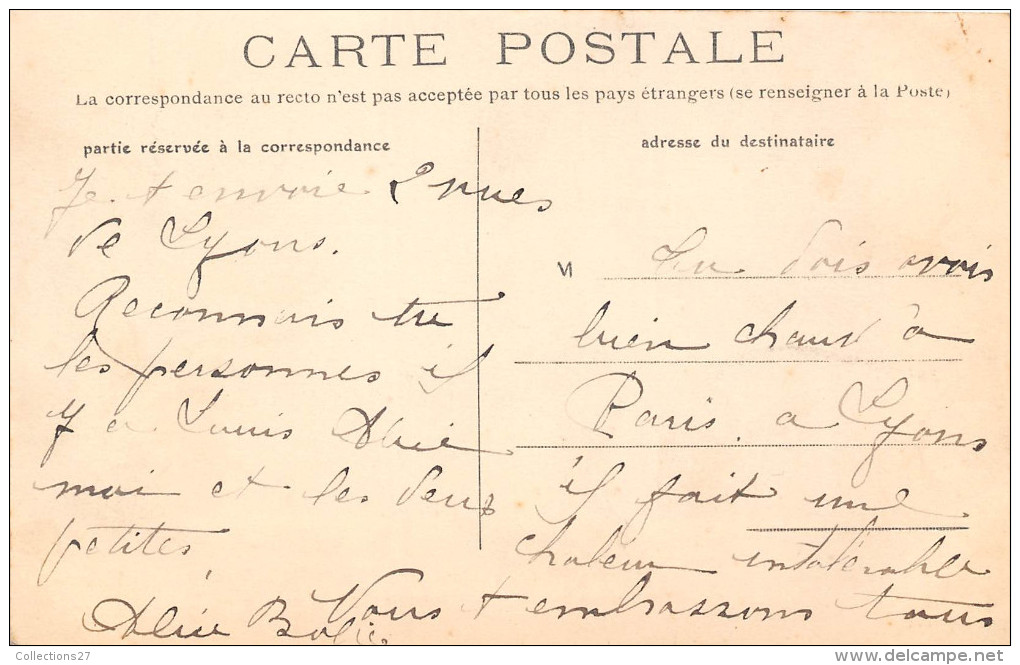 CARTE POSTALE
La correspondance au recto n'est pas acceptée par tous les pays étrangers (se renseigner à la Poste)
partie réservée à la correspondance
Je t envoie 2 vues
de Lyons.
Reconnais tu
les personnes il
y a Louis
moi et les deux
petites,
adresse du destinataire
M
Tu dois avoir
bien chaud à
Paris. a Lyons
il fait une
chaleur intolérable
Nous t embrassons tous
Collections27
delcampe.net